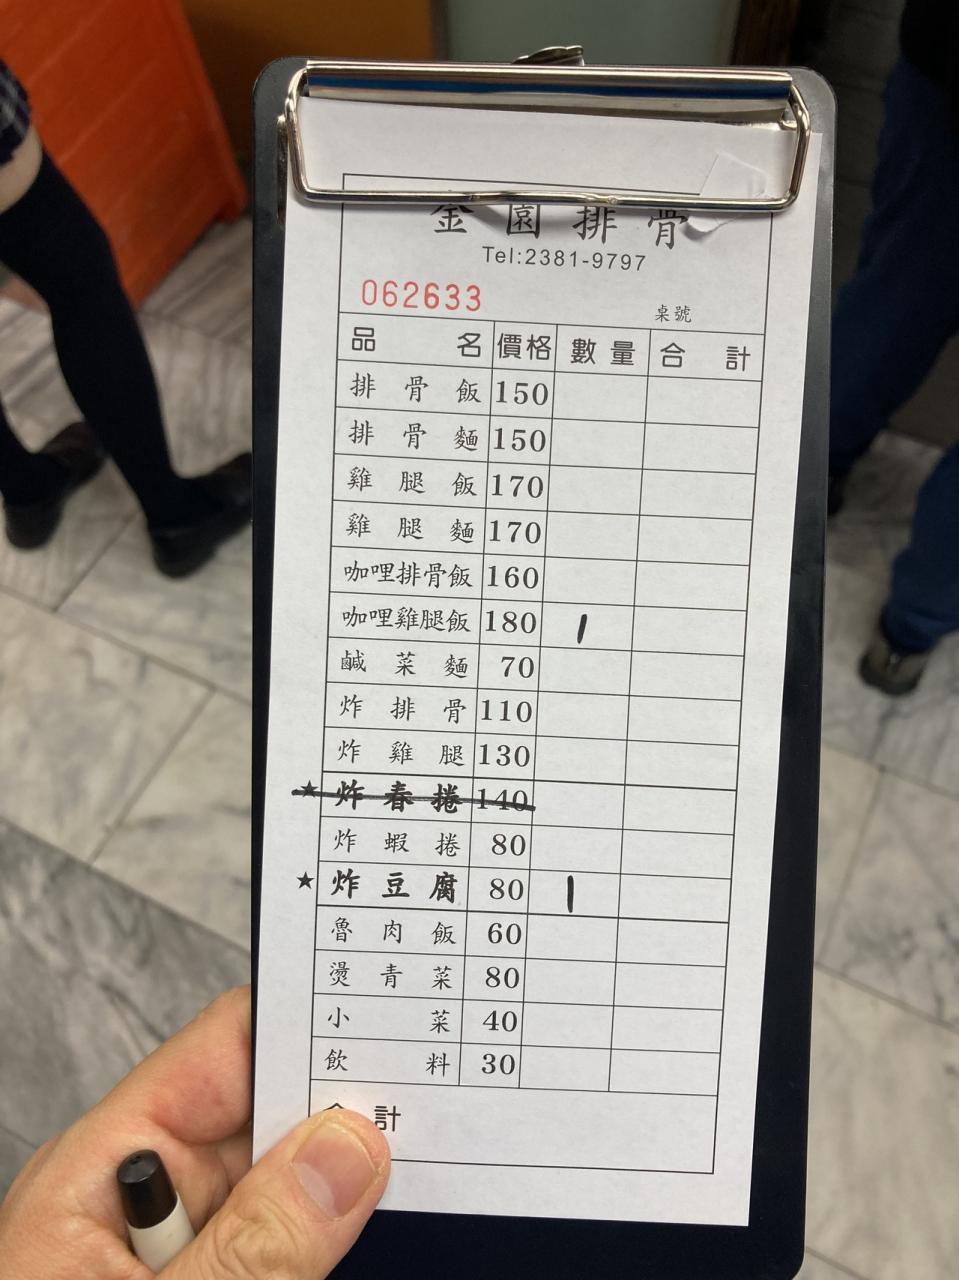 金園排骨
Tel:2381-9797
062633 桌號
品名 價格 數量 合計
排骨飯 150
排骨麵 150
雞腿飯 170
雞腿麵 170
咖哩排骨飯 160
咖哩雞腿飯 180 1
鹹菜麵 70
炸排骨 110
炸雞腿 130
★炸春捲 140
炸蝦捲 80
★炸豆腐 80 1
魯肉飯 60
燙青菜 80
小菜 40
飲料 30
合計